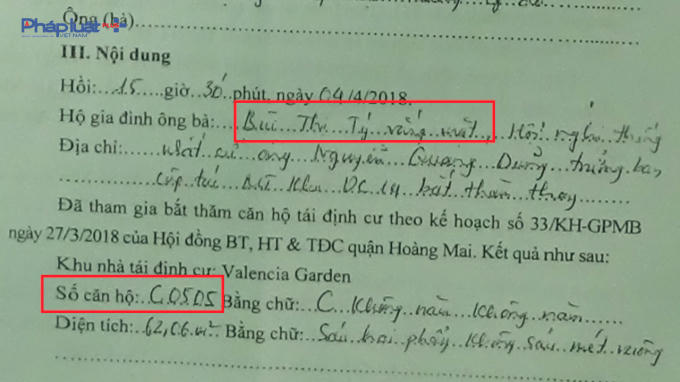 Ông (bà)
Pháp luật Plus
VIỆT NAM
III. Nội dung
Hồi: 15 giờ 30 phút, ngày 04/4/2018.
Hộ gia đình ông bà: Bùi Thị Tý vắng mặt, Hội nghị thống
Địa chỉ: nhất cử ông Nguyễn Quang Dũng trưởng ban
công tác khu DC 14 bắt thăm thay
Đã tham gia bắt thăm căn hộ tái định cư theo kế hoạch số 33/KH-GPMB
ngày 27/3/2018 của Hội đồng BT, HT & TĐC quận Hoàng Mai. Kết quả như sau:
Khu nhà tái định cư: Valencia Garden
Số căn hộ: C0505 Bằng chữ: C không năm không năm
Diện tích: 62,06 m². Bằng chữ: Sáu hai phẩy không sáu mét vuông